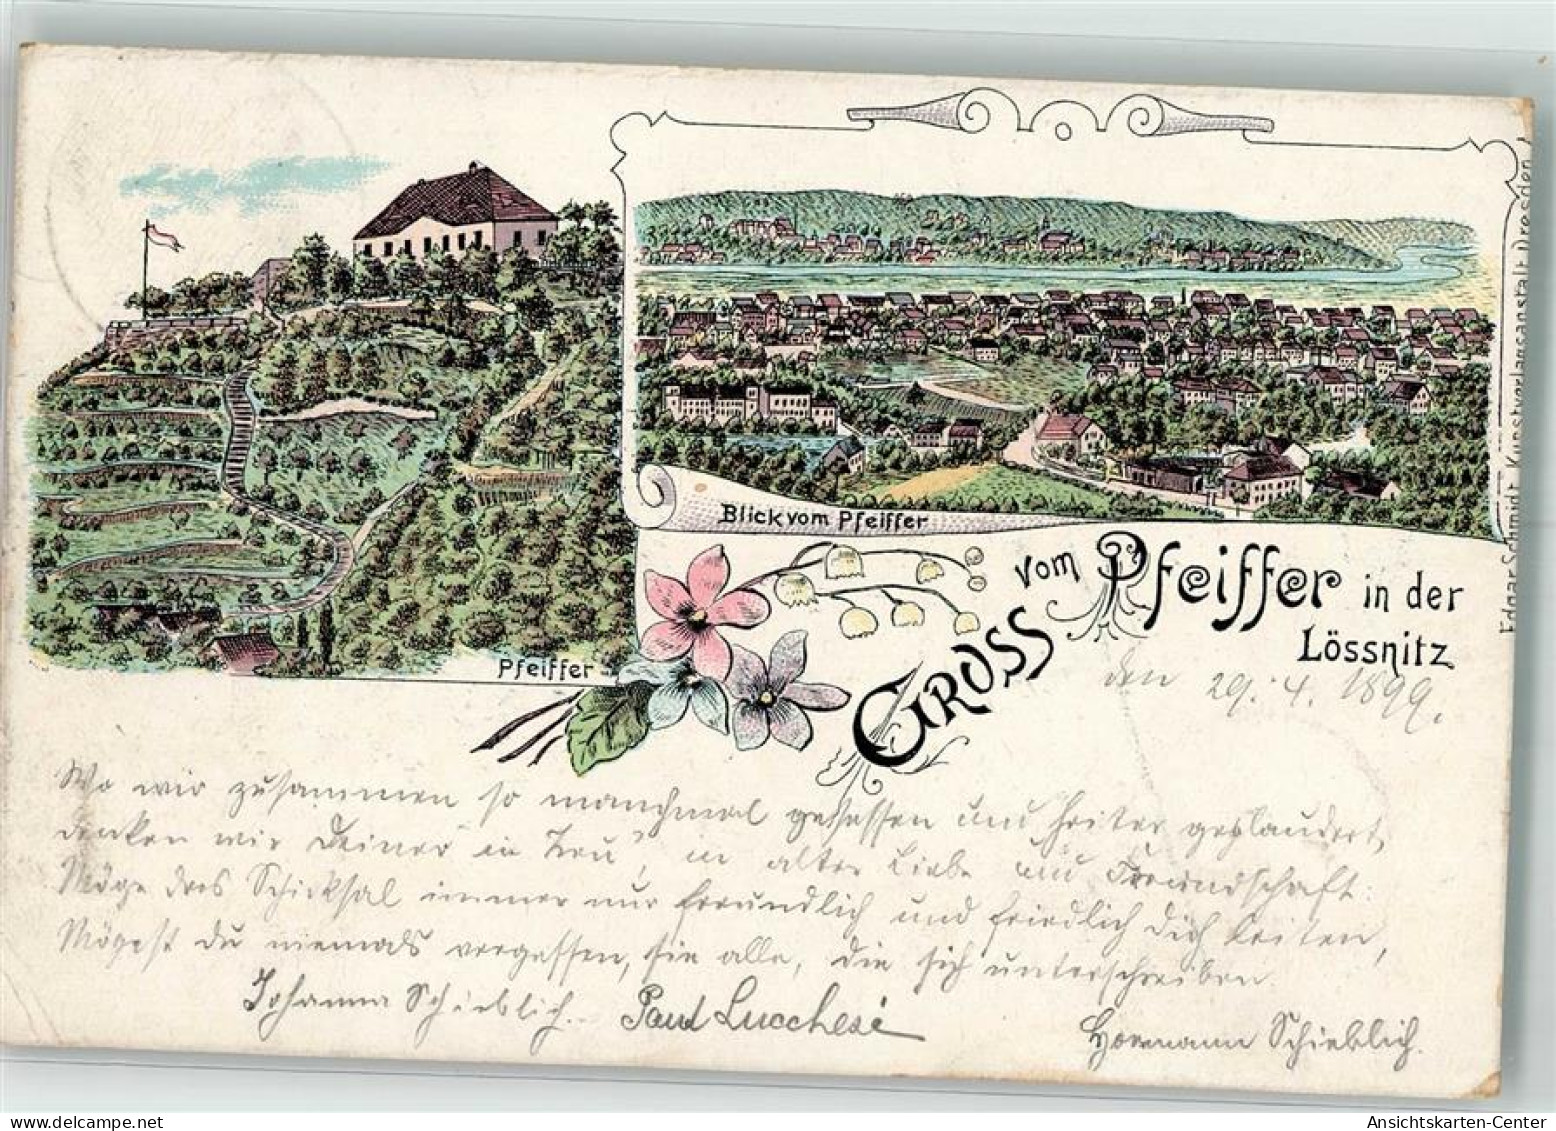 Pfeiffer
Blick vom Pfeiffer
Gross vom Pfeiffer in der
Lössnitz
Edgar Schmidt, Kunstverlagsanstalt Dresden
den 29. 4. 1899.
Wo wir zusammen so manchmal gesessen und heiter geplaudert,
denken wir Deiner in Treu', in alter Liebe und Freundschaft:
Möge das Schicksal immer nur freundlich und friedlich Dich leiten,
Mögest du niemals vergessen, sie alle, die sich unterschreiben.
Johanna Schieblich. Paul Lucchesi
Hermann Schieblich.
oldthing.de
Ansichtskarten-Center